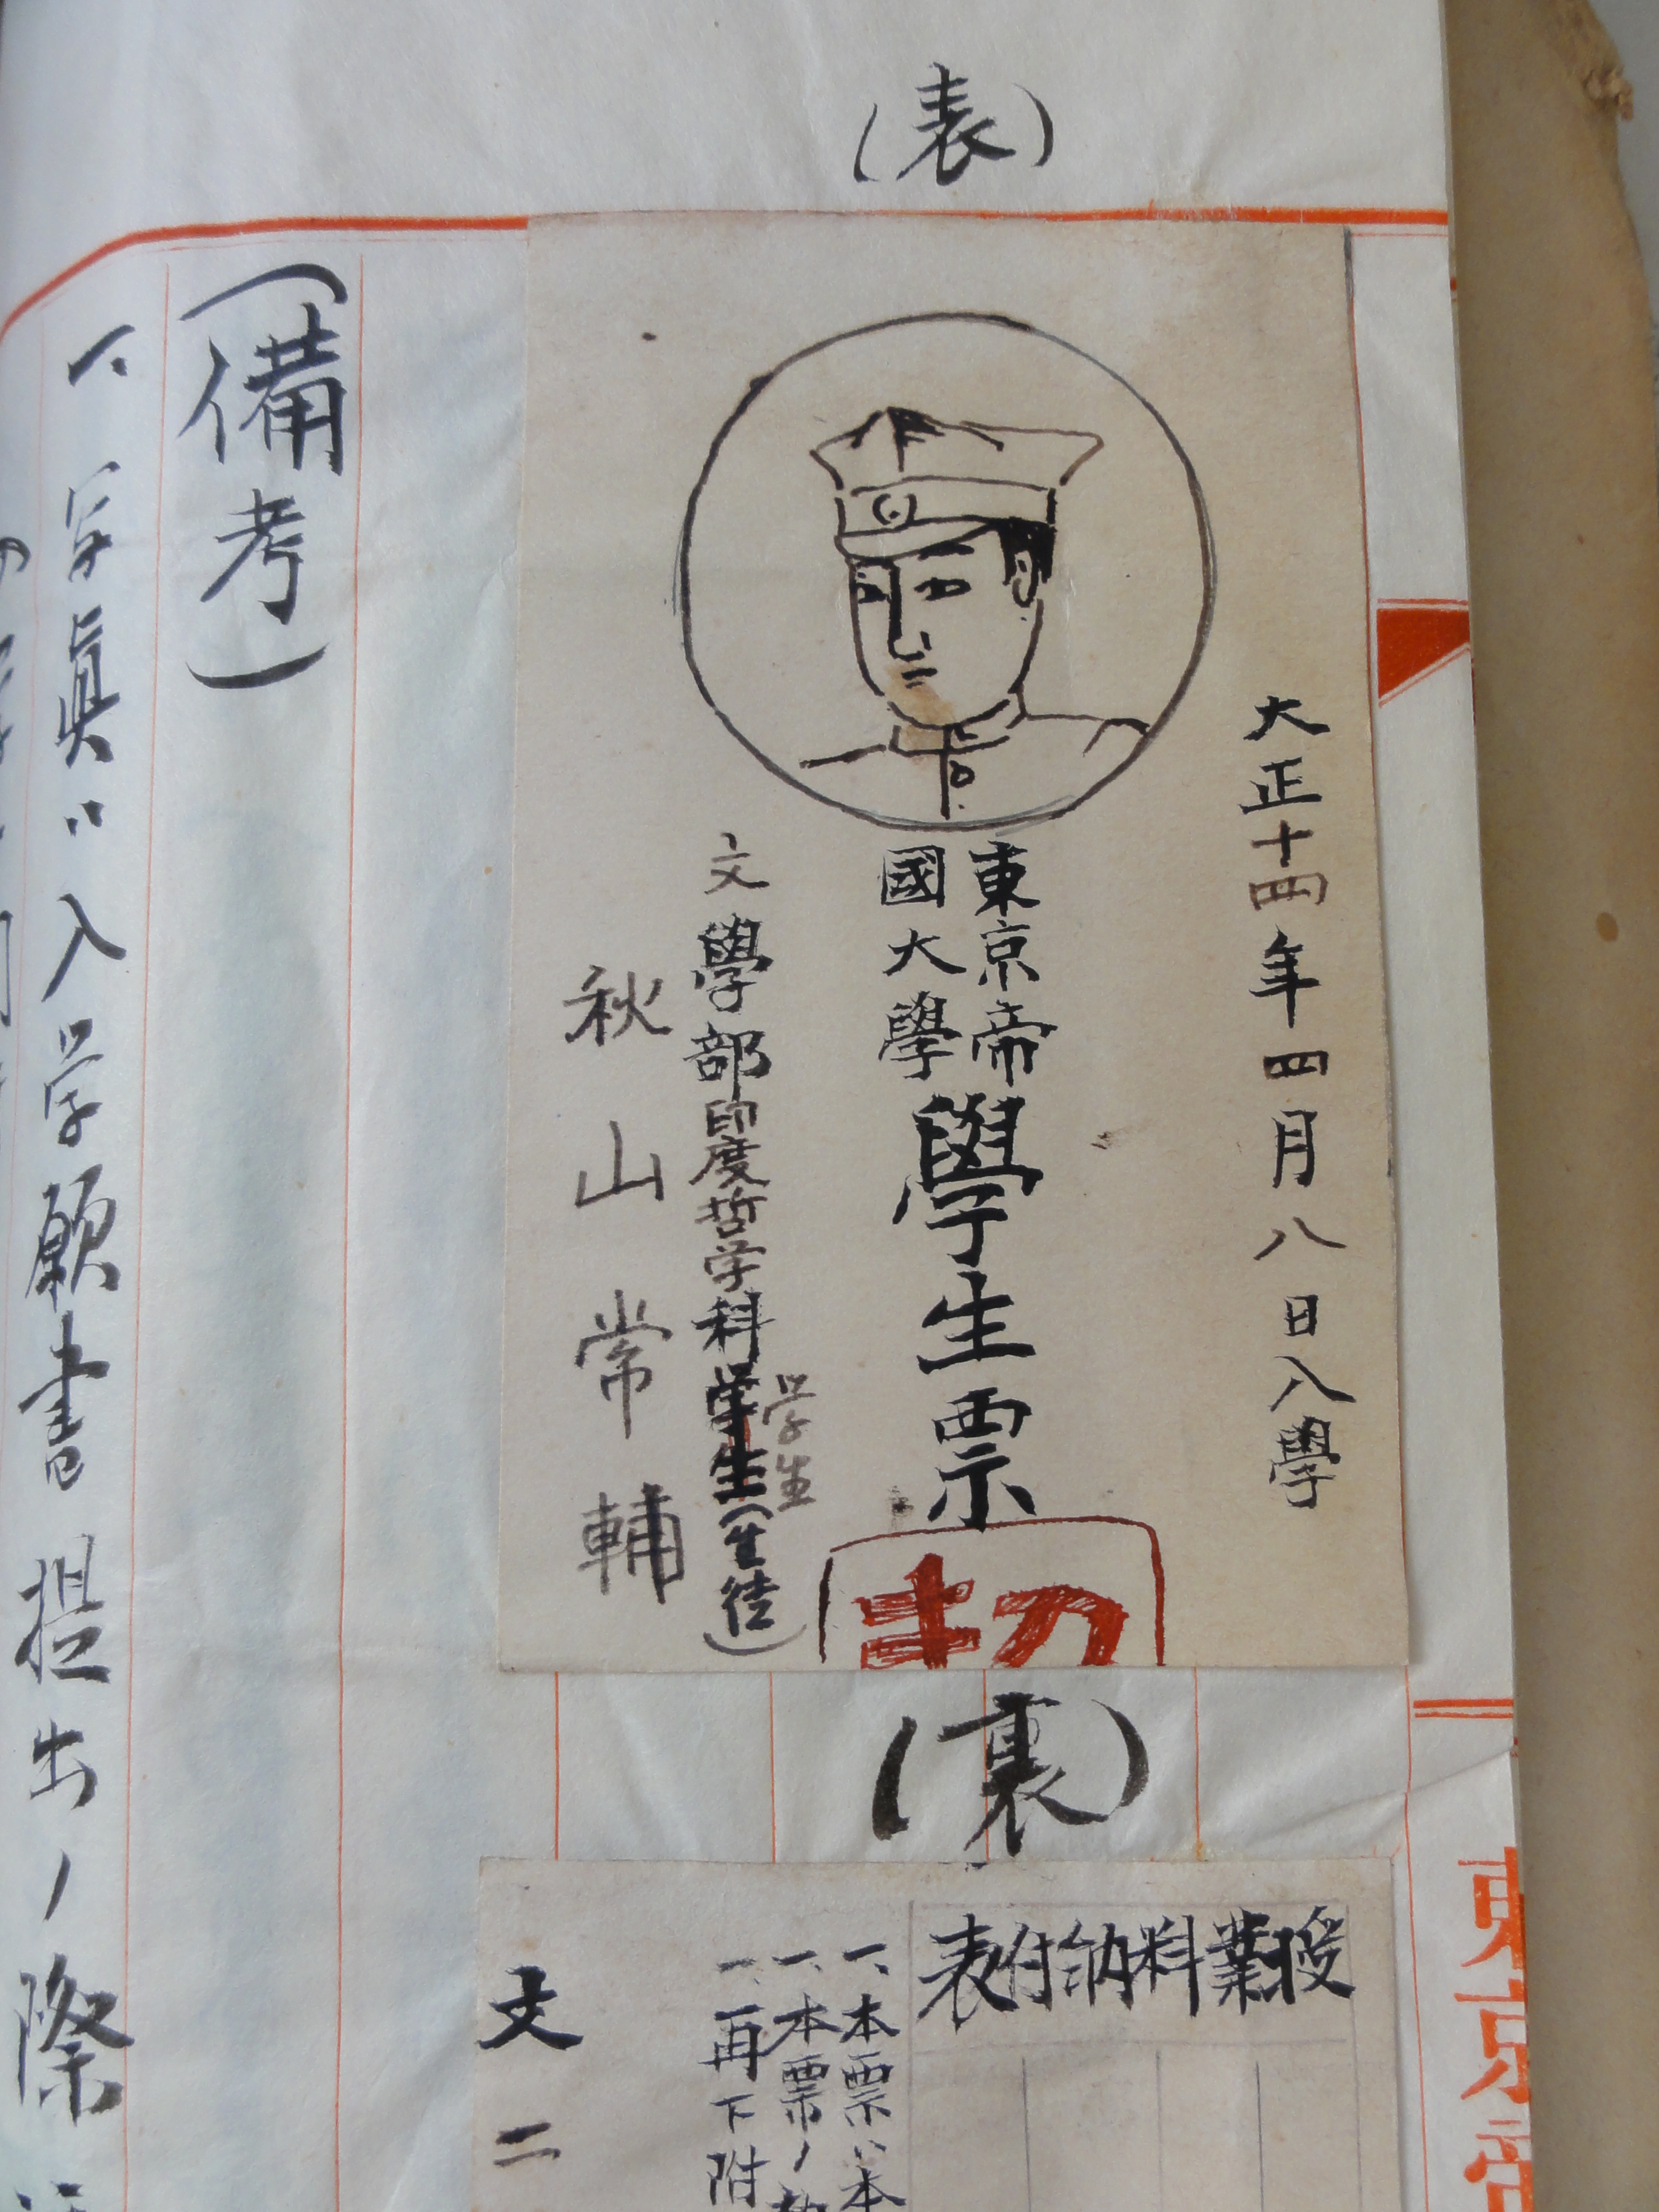 (表)
大正十四年四月八日入學
東京帝
國大學
學生票
文學部印度哲学科学生(生徒)
学生
秋山常輔
(裏)
授業料納付表
一、本票ハ本
一、本票ノ
一、再下附
文二
(備考)
一、写眞ハ入学願書提出ノ際
東京帝